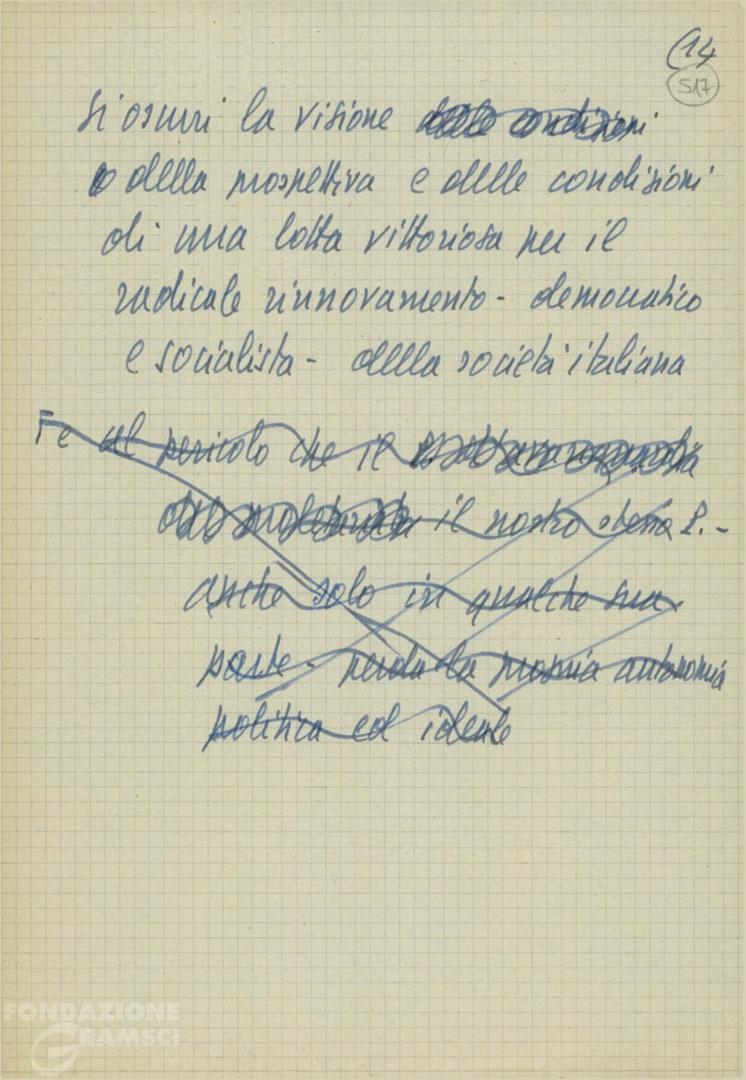 (14
S17
si oscuri la visione delle condizioni
o della prospettiva e delle condizioni
di una lotta vittoriosa per il
radicale rinnovamento - democratico
e socialista - della società italiana
Fe al pericolo che il
il nostro stesso P. -
anche solo in qualche sua
parte - perda la propria autonomia
politica ed ideale
FONDAZIONE
GRAMSCI